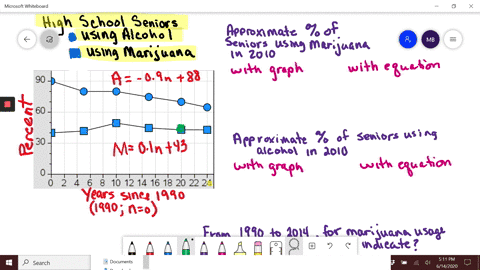 Microsoft Whiteboard
High School Seniors
using Alcohol
using Marijuana
Approximate % of
Seniors using Marijuana
in 2010
with graph with equation
MB
A = -0.9n + 88
M = 0.1n + 43
Percent
90
60
30
0
0 2 4 6 8 10 12 14 16 18 20 22 24
Years since 1990
(1990; n=0)
Approximate % of seniors using
alcohol in 2010
with graph with equation
From 1990 to 2014, for marijuana usage
indicate?
Search
Documents
5:11 PM
6/14/2020